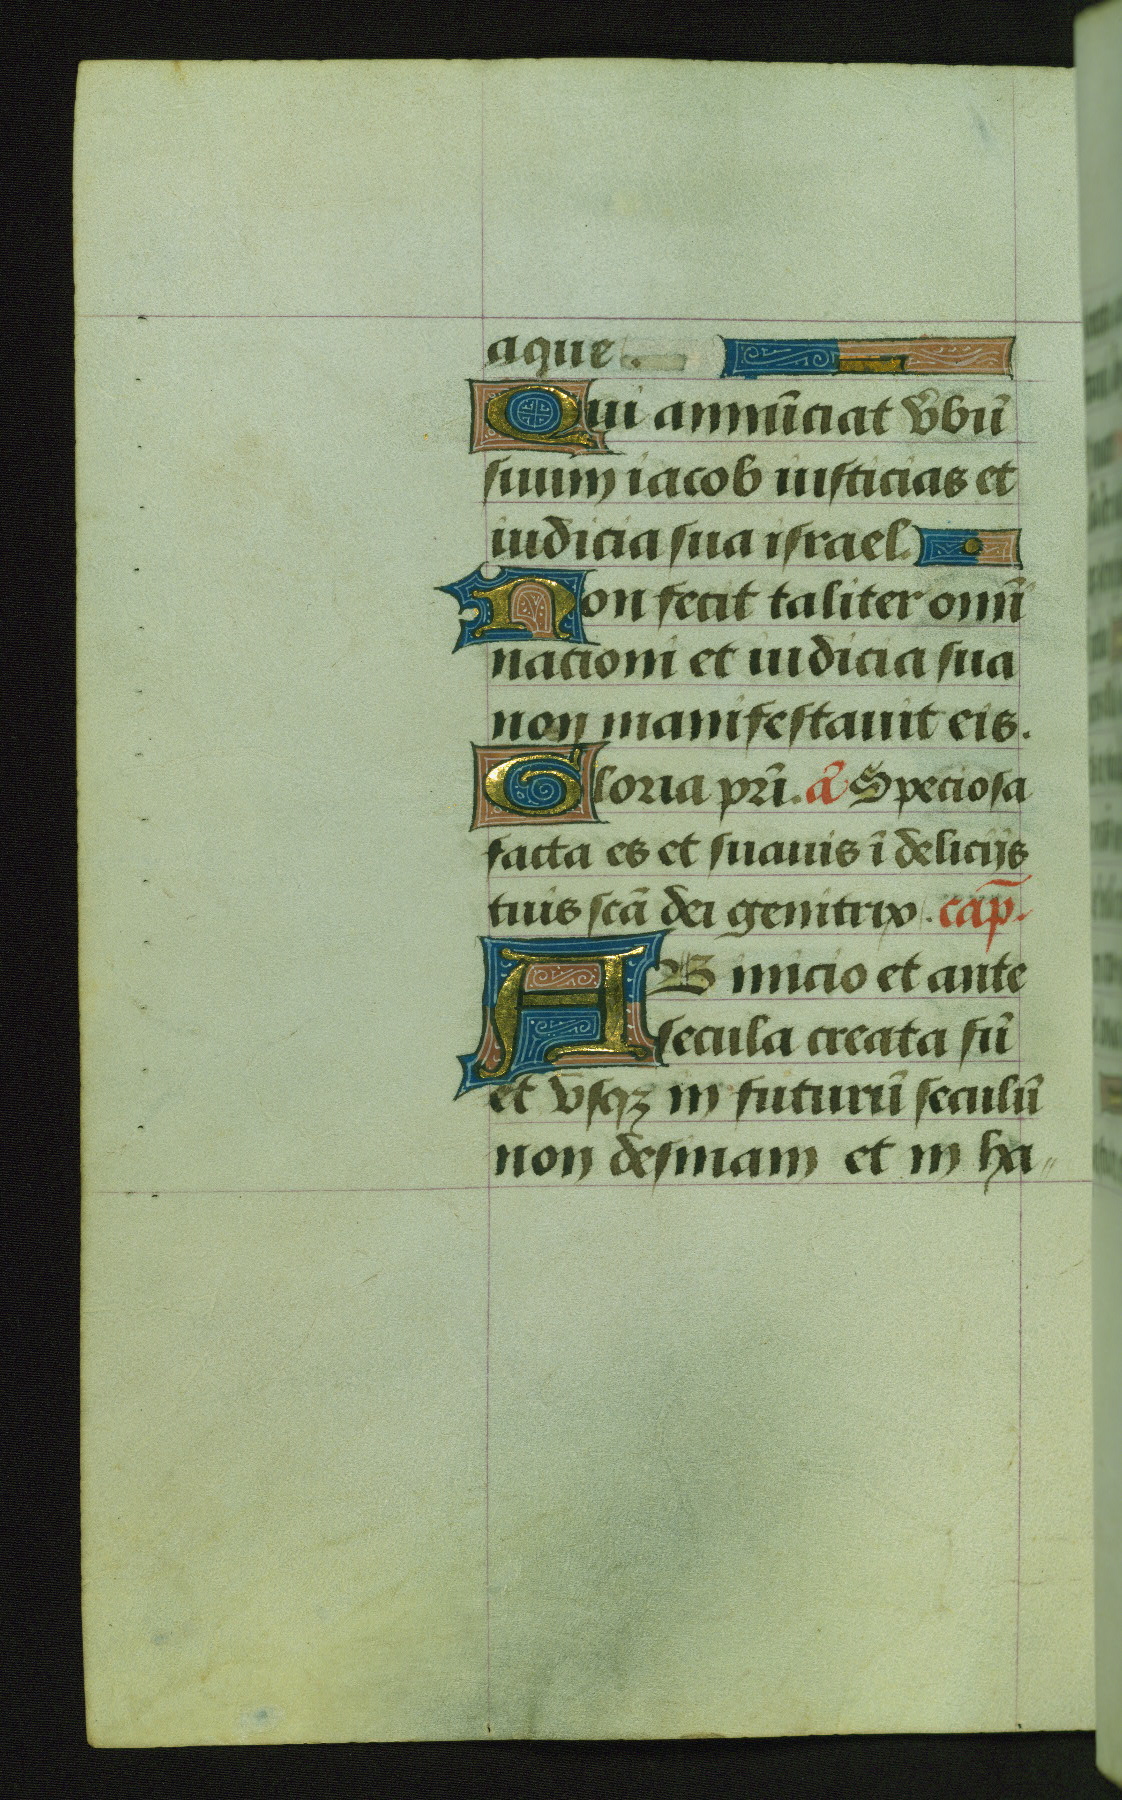 aque.
Qui annūciat v̄bū
suum iacob iusticias et
iudicia sua israel.
Non fecit taliter omni
nationi et iudicia sua
non manifestavit eis.
Gloria pr̄i. a᷑ Speciosa
facta es et suauis ī deliciis
tuis scā dei genitrix. cap̄.
AB inicio et ante
secula creata sū
et vsqꝫ in futurū seculū
non desinam et in ha〃